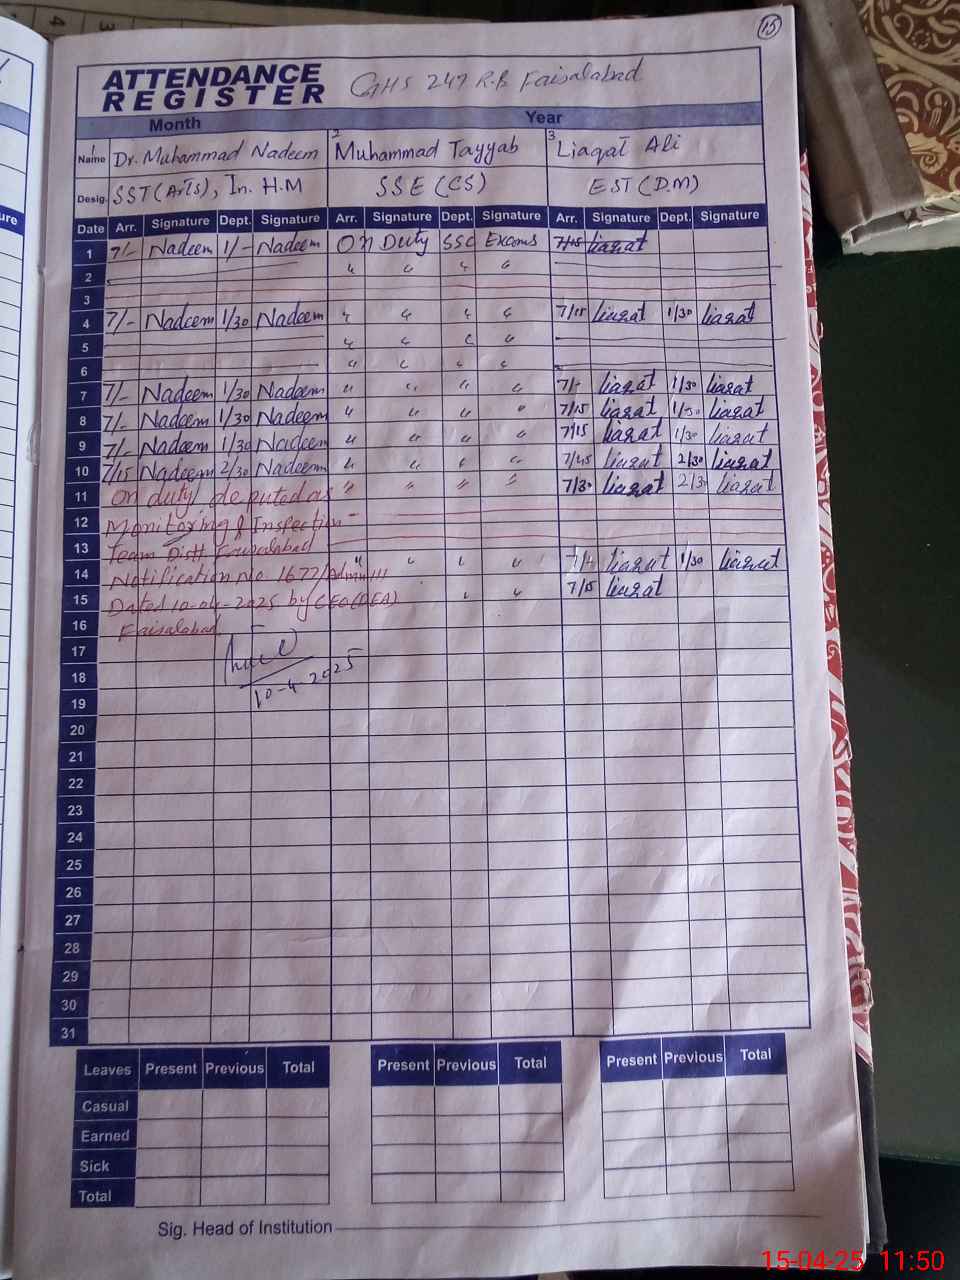 15
ATTENDANCE REGISTER GHS 247 R.B Faisalabad
Month Year
Name 1 Dr. Muhammad Nadeem 2 Muhammad Tayyab 3 Liaqat Ali
Desig. SST (Arts), In. H.M SSE (CS) EST (D.M)
Date Arr. Signature Dept. Signature Arr. Signature Dept. Signature Arr. Signature Dept. Signature
1 7/- Nadeem 1/- Nadeem On Duty SSC Exams 7/15 liaqat
2 " " " "
3
4 7/- Nadeem 1/30 Nadeem " " " " 7/15 liaqat 1/30 liaqat
5 " " " "
6 " " " "
7 7/- Nadeem 1/30 Nadeem " " " " 7/- liaqat 1/30 liaqat
8 7/- Nadeem 1/30 Nadeem " " " " 7/15 liaqat 1/30 liaqat
9 7/- Nadeem 1/30 Nadeem " " " " 7/15 liaqat 1/30 liaqat
10 7/15 Nadeem 2/30 Nadeem " " " " 7/45 liaqat 2/30 liaqat
11 On duty/ deputed as " " " " 7/30 liaqat 2/30 liaqat
12 Monitoring & Inspection
13 Team Distt Faisalabad
14 Notification No. 1677/Admn III " " " " 7/- liaqat 1/30 liaqat
15 Dated 10-04-2025 by CEO (DEA) " " 7/15 liaqat
16 Faisalabad
17
18 10-4-2025
19
20
21
22
23
24
25
26
27
28
29
30
31
Leaves Present Previous Total Present Previous Total Present Previous Total
Casual
Earned
Sick
Total
Sig. Head of Institution
15-04-25 11:50